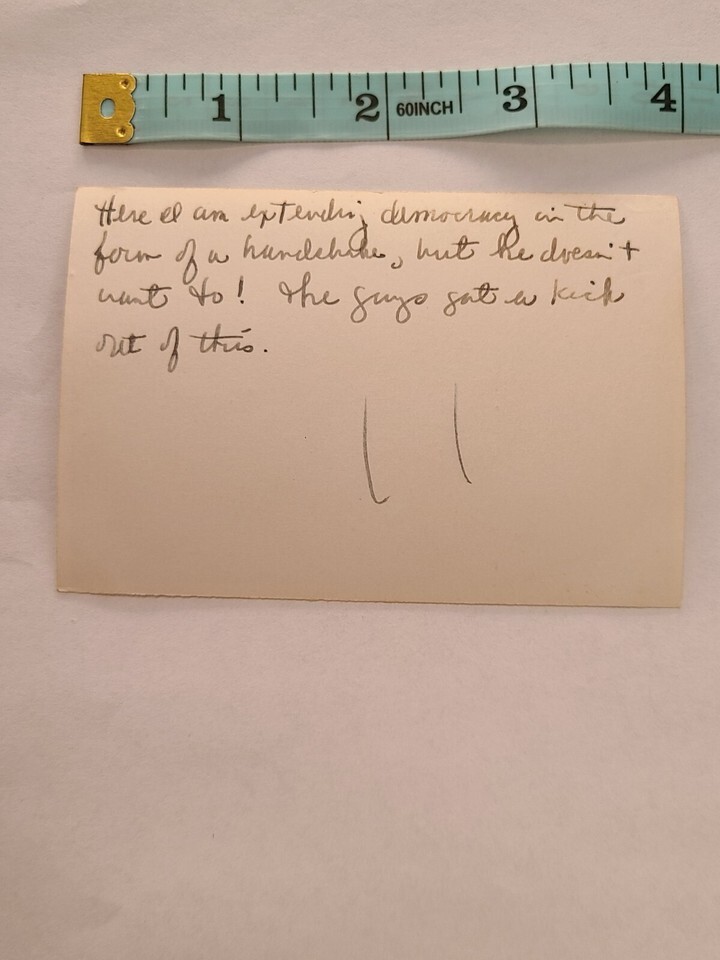 1 2 60INCH 3 4
Here I am extending democracy in the
form of a handshake, but he doesn't
want to! The guys got a kick
out of this.